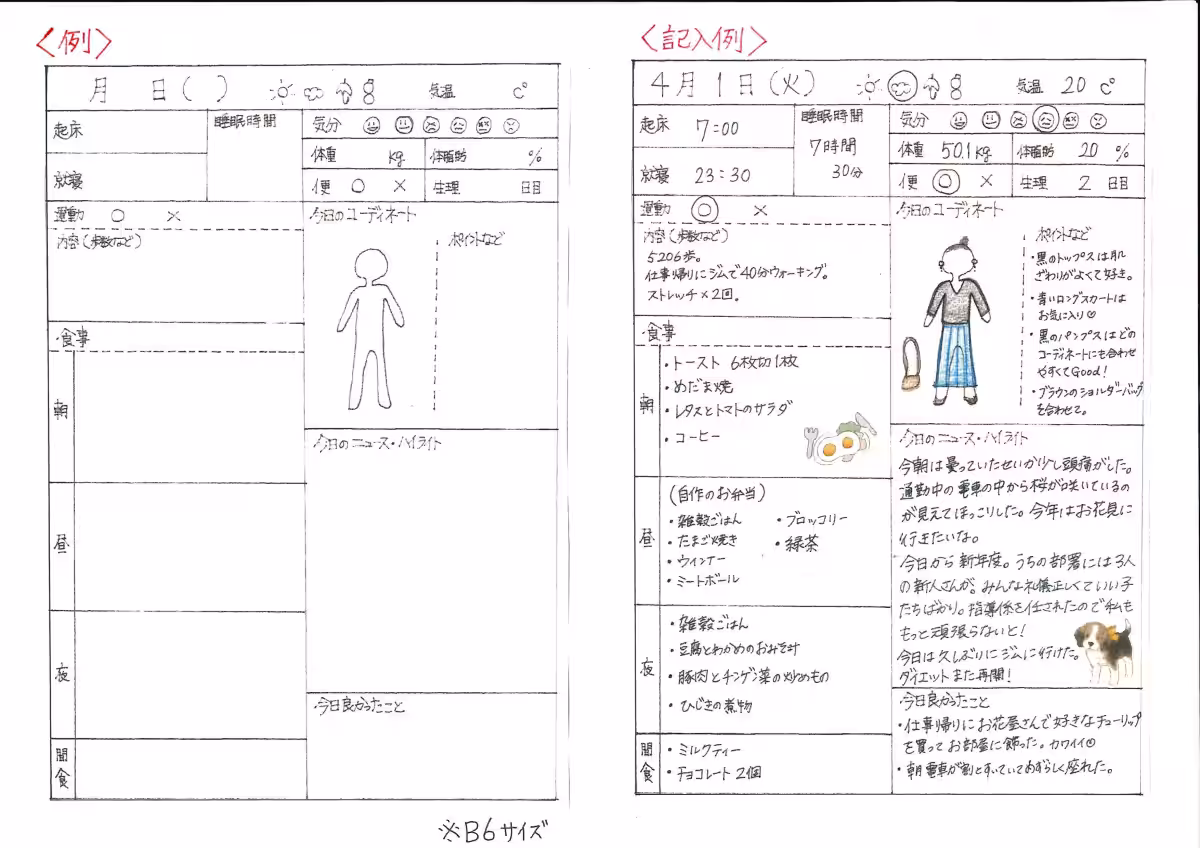 〈例〉
月 日( ) 気温 C°
起床
睡眠時間
気分
体重 kg 体脂肪 %
就寝
便 ○ × 生理 日目
運動 ○ ×
内容(歩数など)
今日のコーディネート
ポイントなど
食事
朝
昼
夜
間食
今日のニュース・ハイライト
今日良かったこと
※B6サイズ
〈記入例〉
4月1日(火) 気温 20 C°
起床 7:00
睡眠時間
7時間
30分
気分
体重 50.1kg 体脂肪 20 %
就寝 23:30
便 ○ × 生理 2 日目
運動 ○ ×
内容(歩数など)
5206歩。
仕事帰りにジムで40分ウォーキング。
ストレッチ×2回。
食事
朝
・トースト 6枚切1枚
・めだま焼
・レタスとトマトのサラダ
・コーヒー
昼
(自作のお弁当)
・雑穀ごはん ・ブロッコリー
・たまご焼き ・緑茶
・ウィンナー
・ミートボール
夜
・雑穀ごはん
・豆腐とわかめのおみそ汁
・豚肉とチンゲン菜の炒めもの
・ひじきの煮物
間食
・ミルクティー
・チョコレート 2個
今日のコーディネート
ポイントなど
・黒のトップスは肌
ざわりがよくて好き。
・青いロングスカートは
お気に入り
・黒のパンプスはどの
コーディネートにも合わせ
やすくてGood!
・ブラウンのショルダーバッグ
を合わせて。
今日のニュース・ハイライト
今朝は曇っていたせいか少し頭痛がした。
通勤中の電車の中から桜が咲いているの
が見えてほっこりした。今年はお花見に
行きたいな。
今日から新年度。うちの部署には3人
の新人さんが。みんな礼儀正しくていい子
たちばかり。指導係を任されたので私も
もっと頑張らないと!
今日は久しぶりにジムに行けた。
ダイエットまた再開!
今日良かったこと
・仕事帰りにお花屋さんで好きなチューリップ
を買ってお部屋に飾った。カワイイ
・朝電車が割とすいていてめずらしく座れた。